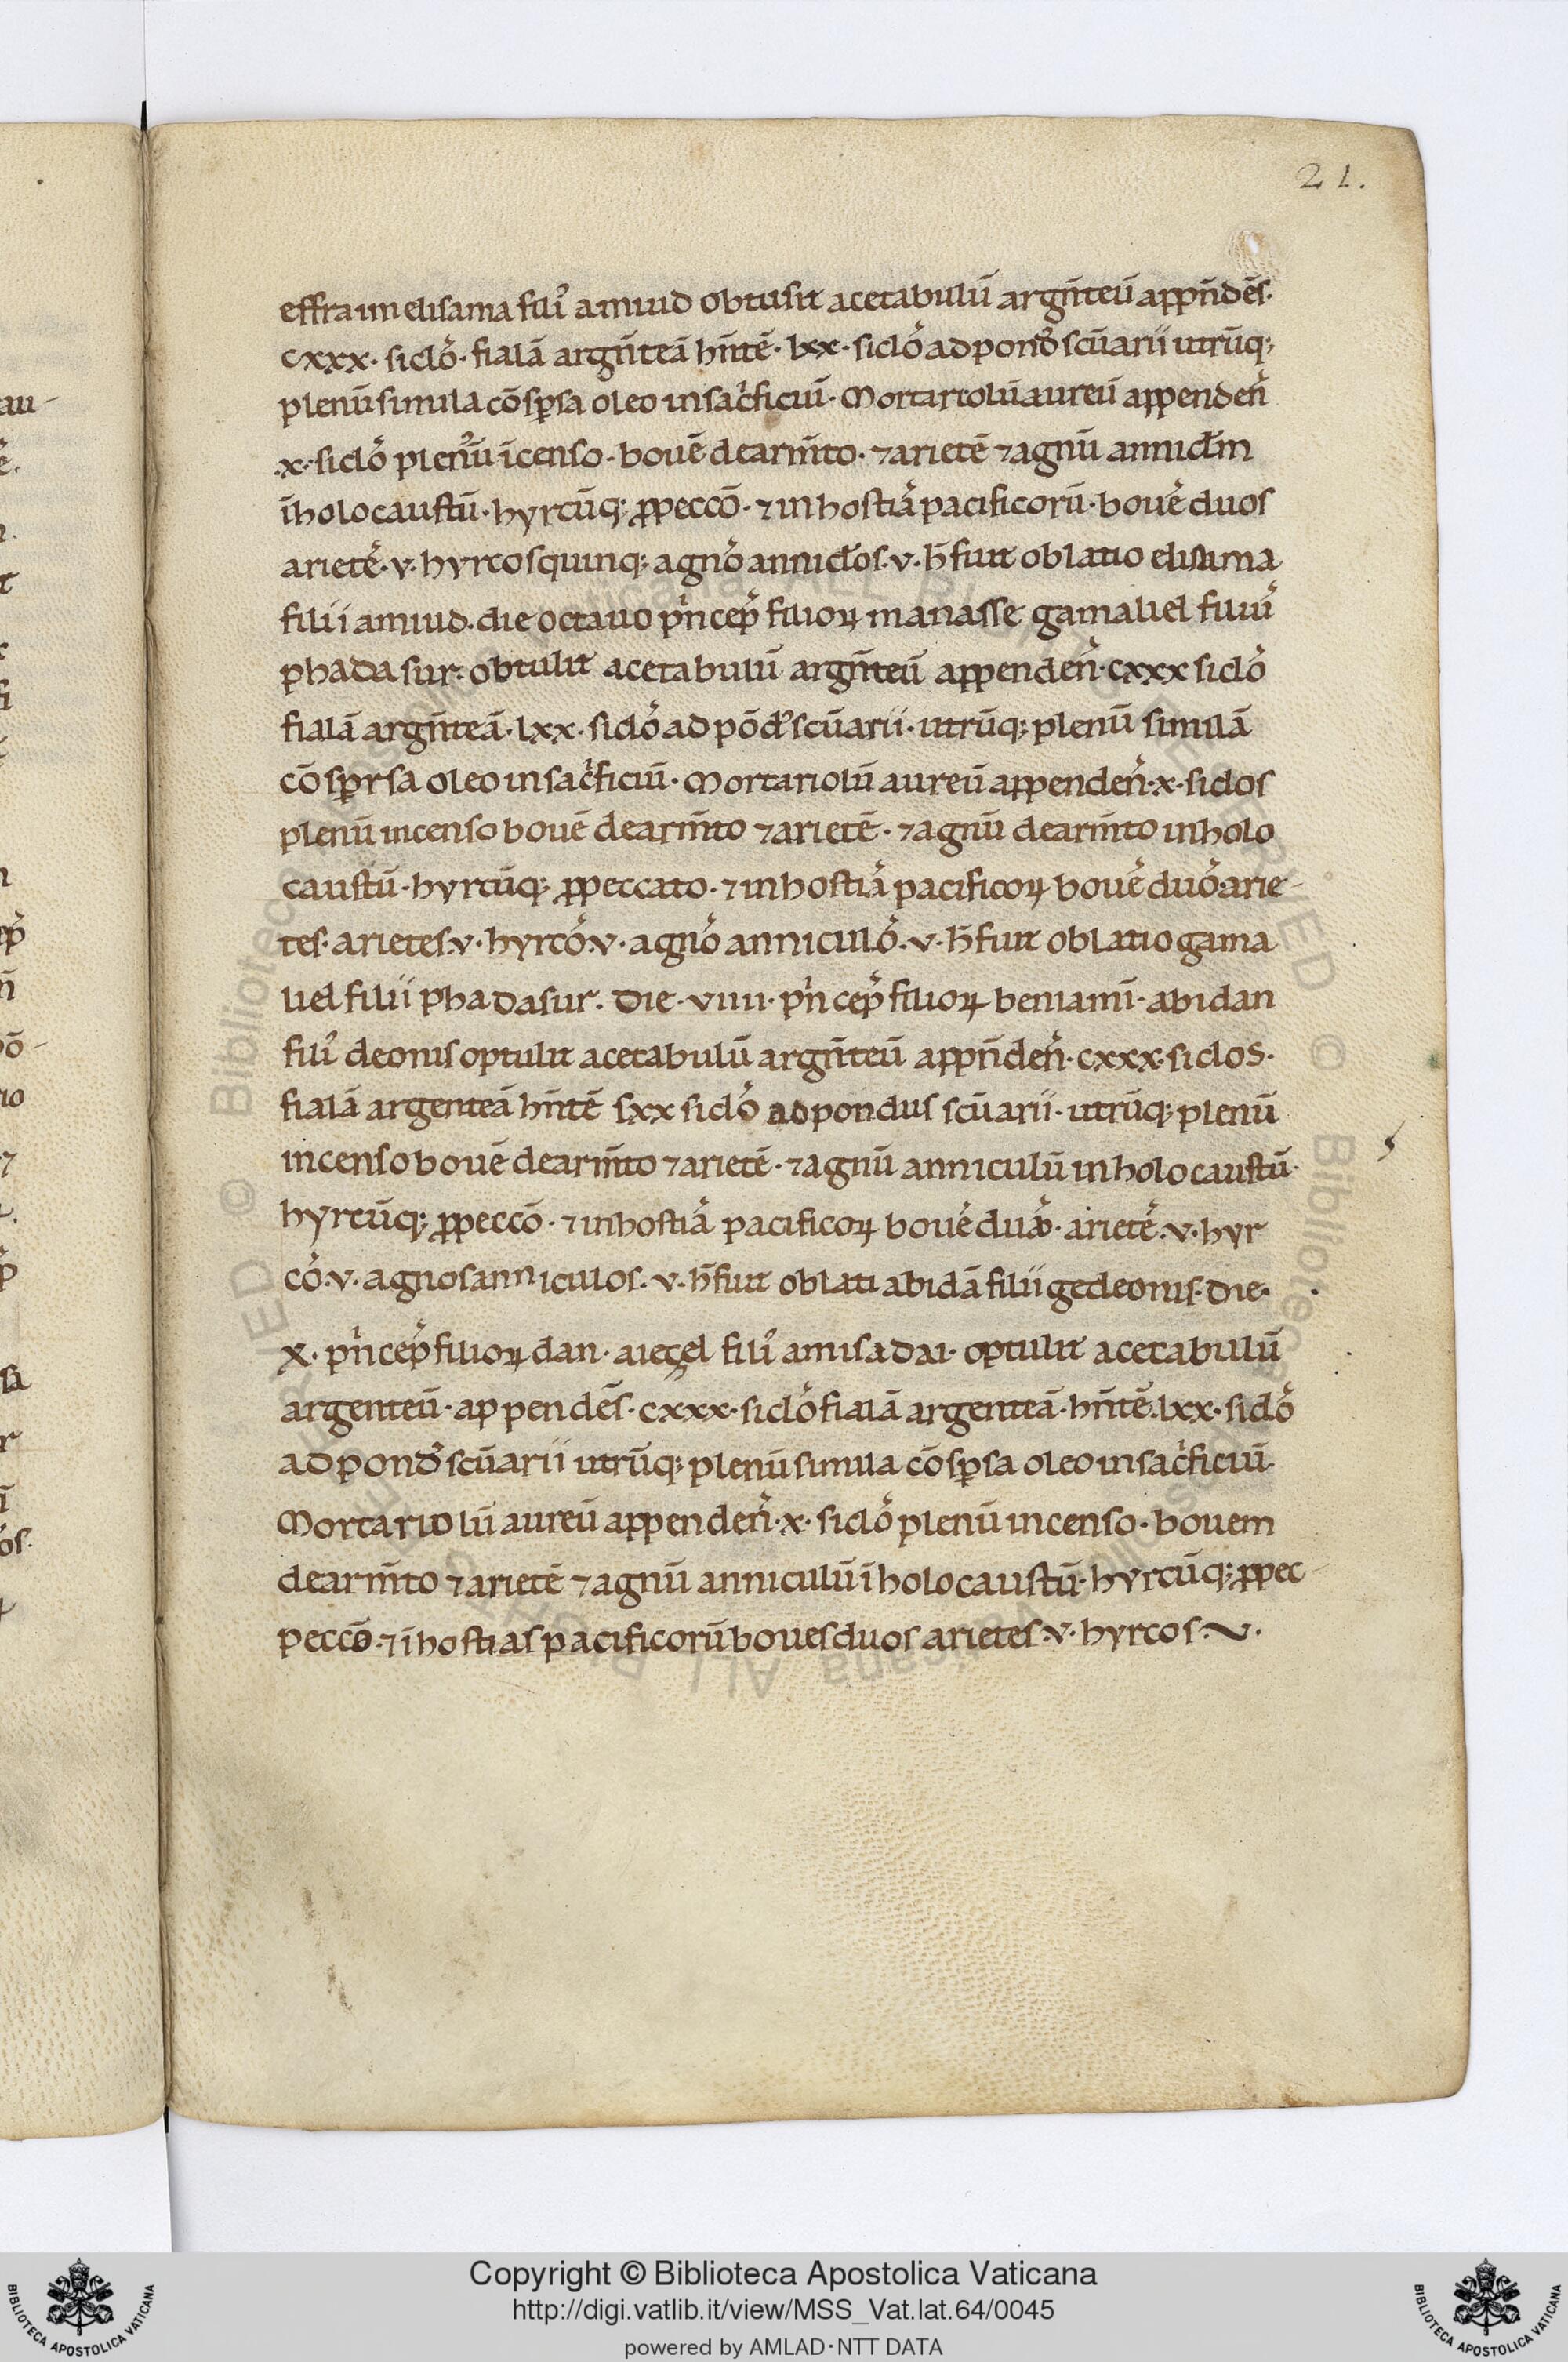 21.
effraim elisama fili᾽ amiud obtusit acetabulū argn̄teū appn̄dēs·
cxxx· siclo᾽· fialā argn̄teā hn̄tē· lxx· siclo᾽ ad pond᾽ scūarii utrūq;
plenū simila cōspsa oleo in sac᾽ficiū· Mortariolū aureū appenden᾽
·x· siclo᾽ plenūū īcenso· bouē de arm̄to· ⁊ arietē ⁊ agnū annicl̄m
ī holocaustū· hyrcūq; p peccō· ⁊ in hostia᾽ pacificorū· boue᾽ duos
ariete᾽· v· hyrcos quinq; agno᾽ annicl̄os· v· h̄ fuit oblatio elisama
filii amiud· die octauo p᾽ncep᾽ filioꝝ manasse gamaliel filiu᾽
phadasur· obtulit acetabulū argn̄teū appenden᾽· cxxx siclo᾽
fialā argn̄teā· lxx· siclo᾽ ad pōd᾽ scūarii· utrūq; plenū similā
cōspersa oleo in sac᾽ficiū· Mortariolū aureū appenden᾽· x· siclos
plenū incenso bouē de arm̄to ⁊ arietē· ⁊ agnū de arm̄to in holo
caustū· hyrcūq; p peccato· ⁊ in hostia᾽ pacificoꝝ boue᾽ duo᾽· arie-
tes· arietes· v· hyrco᾽· v· agno᾽ anniculo᾽· v· h̄ fuit oblatio gama
liel filii phadasur· Die· viiii· p᾽ncep᾽ filioꝝ beniamī· abidan
fili᾽ deonis optulit acetabulū argn̄teū appn̄den᾽· cxxx· siclos·
fialā argenteā hn̄tē sxx siclo᾽ ad pondus scūarii· utrūq; plenū
incenso bouē de arm̄to ⁊ arietē· ⁊ agnū anniculū in holocaustū·
hyrcūq; p peccō· ⁊ in hostia᾽ pacificoꝝ boue᾽ duo᾽· ariete᾽· v· hyr
co᾽· v· agnos anniculos· v· h̄ fuit oblati abidā filii gedeonis· Die·
X· p᾽ncep᾽ filioꝝ dan· aiezel fili᾽ amisadai· optulit acetabulū
argenteū· appendēs· cxxx· siclo᾽ fialā argenteā· hn̄tē· lxx· siclo᾽
ad pond᾽ scūarii utrūq; plenū simila cōspsa oleo in sac᾽ficiū·
Mortariolū aureū appenden᾽· x· siclo᾽ plenū incenso· bouem
de arm̄to ⁊ arietē ⁊ agnū anniculū ī holocaustū· hyrcūq; p pec-
peccō· ⁊ ī hostias pacificorū boues duos arietes· v· hyrcos· V·
Copyright © Biblioteca Apostolica Vaticana
http://digi.vatlib.it/view/MSS_Vat.lat.64/0045
powered by AMLAD·NTT DATA
BIBLIOTECA APOSTOLICA VATICANA
BIBLIOTECA APOSTOLICA VATICANA